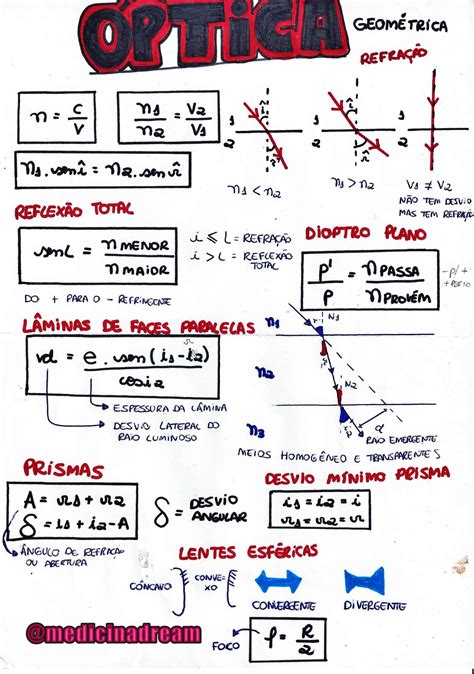 ÓPTICA GEOMÉTRICA
REFRAÇÃO
n = c/v
n1/n2 = v2/v1
n1 . sen î = n2 . sen r̂
1
2
î
r̂
n1 < n2
1
2
î
r̂
n1 > n2
1
2
v1 ≠ v2
NÃO TEM DESVIO
MAS TEM REFRAÇÃO
REFLEXÃO TOTAL
sen L = n MENOR / n MAIOR
i ≤ L = REFRAÇÃO
i > L = REFLEXÃO
TOTAL
DO + PARA O - REFRINGENTE
DIOPTRO PLANO
p'/p = n PASSA / n PROVÉM
LÂMINAS DE FACES PARALELAS
d = e . sen (i1 - i2) / cos i2
ESPESSURA DA LÂMINA
DESVIO LATERAL DO
RAIO LUMINOSO
n1
N1
n2
N2
n3
d
RAIO EMERGENTE
MEIOS HOMOGÊNEO E TRANSPARENTES
PRISMAS
A = r1 + r2
δ = i1 + i2 - A
δ = DESVIO
ANGULAR
ÂNGULO DE REFRAÇÃO
OU ABERTURA
DESVIO MÍNIMO PRISMA
i1 = i2 = i
r1 = r2 = r
LENTES ESFÉRICAS
CÔNCAVO
CONVE-
XO
CONVERGENTE
DIVERGENTE
@medicinadream
FOCO
f = R/2